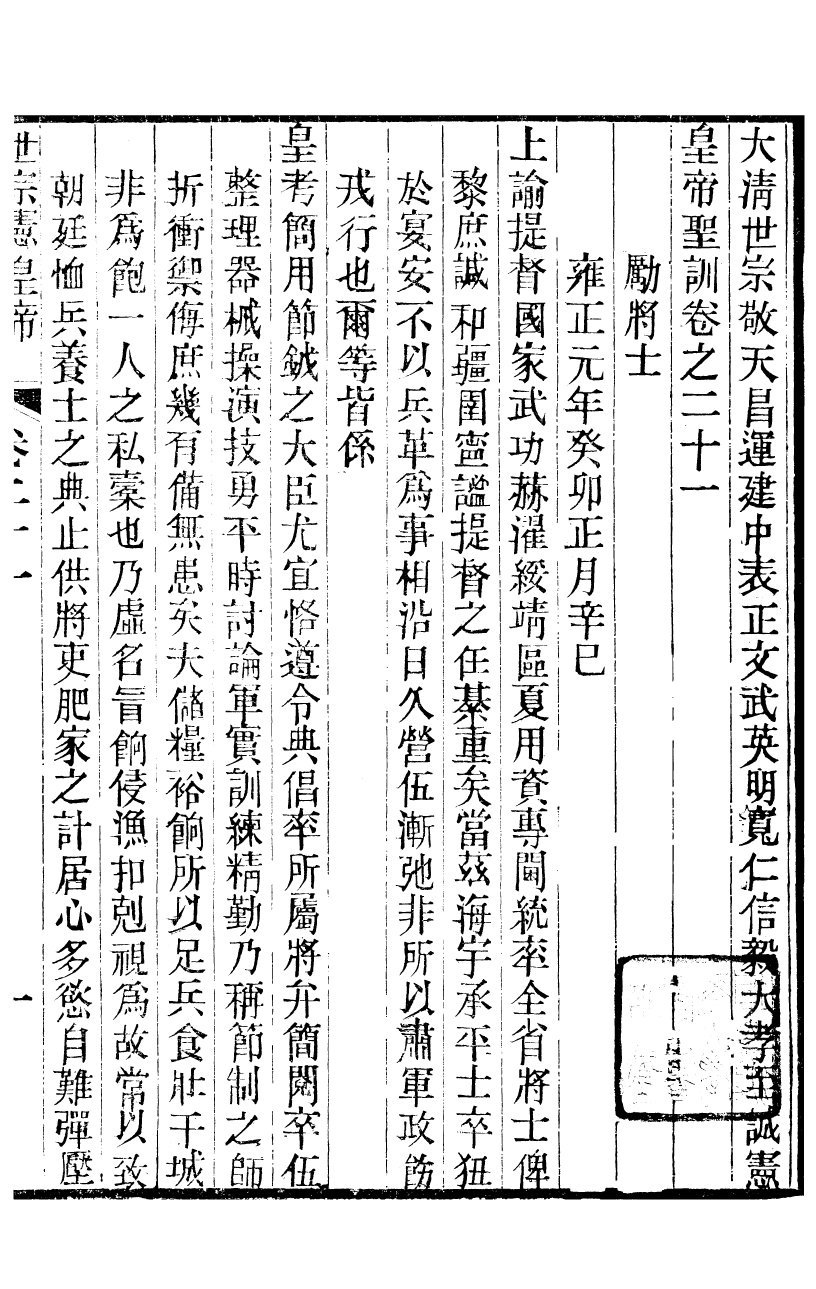 大清世宗敬天昌運建中表正文武英明寬仁信毅大孝至誠憲
皇帝聖訓卷之二十一
勵將士
雍正元年癸卯正月辛巳
上諭提督國家武功赫濯綏靖區夏用資專閫統率全省將士俾
黎庶諴和疆圉寍謐提督之任綦重矣當茲海宇承平士卒狃
於宴安不以兵革爲事相沿日久營伍漸弛非所以肅軍政飭
戎行也爾等皆係
皇考簡用節鉞之大臣尤宜恪遵令典倡率所屬將弁簡閱卒伍
整理器械操演技勇平時討論軍實訓練精勤乃稱節制之師
折衝禦侮庶幾有備無患矣夫儲糧裕餉所以足兵食壯干城
非爲飽一人之私橐也乃虛名冒餉侵漁扣剋視爲故常以致
朝廷恤兵養士之典止供將吏肥家之計居心多慾自難彈壓
世宗憲皇帝 卷二十一 一